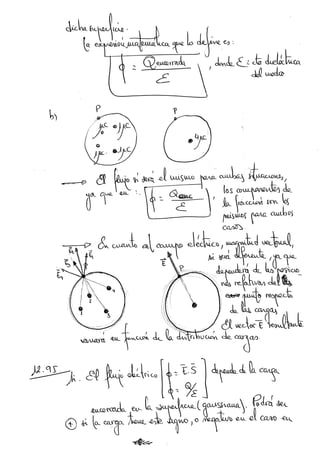 dicha superficie.
La expresión matemática que lo define es:
ϕ = Qencerrada / ε , donde ε: cte dieléctrica
del medio
b)
P P
μC 1μC
μC 1μC 4μC
→ El flujo sí será el mismo para ambas situaciones,
ya que en: ϕ = Qenc / ε , los componentes de
la fracción son los
mismos para ambos
casos.
→ En cuanto al campo eléctrico, magnitud vectorial,
sí será diferente, ya que
dependerá de las posicio-
nes relativas del
punto respecto
de las cargas
El vector E resultante
variará en función de la distribución de cargas.
E P
1 2 3 4
12.95
Sí. El flujo eléctrico [ϕ = E·S ϕ = Q/ε] depende de la carga
encerrada en la superficie (gaussiana). Podrá ser
⊕ si la carga tiene este signo, o negativo en el caso en